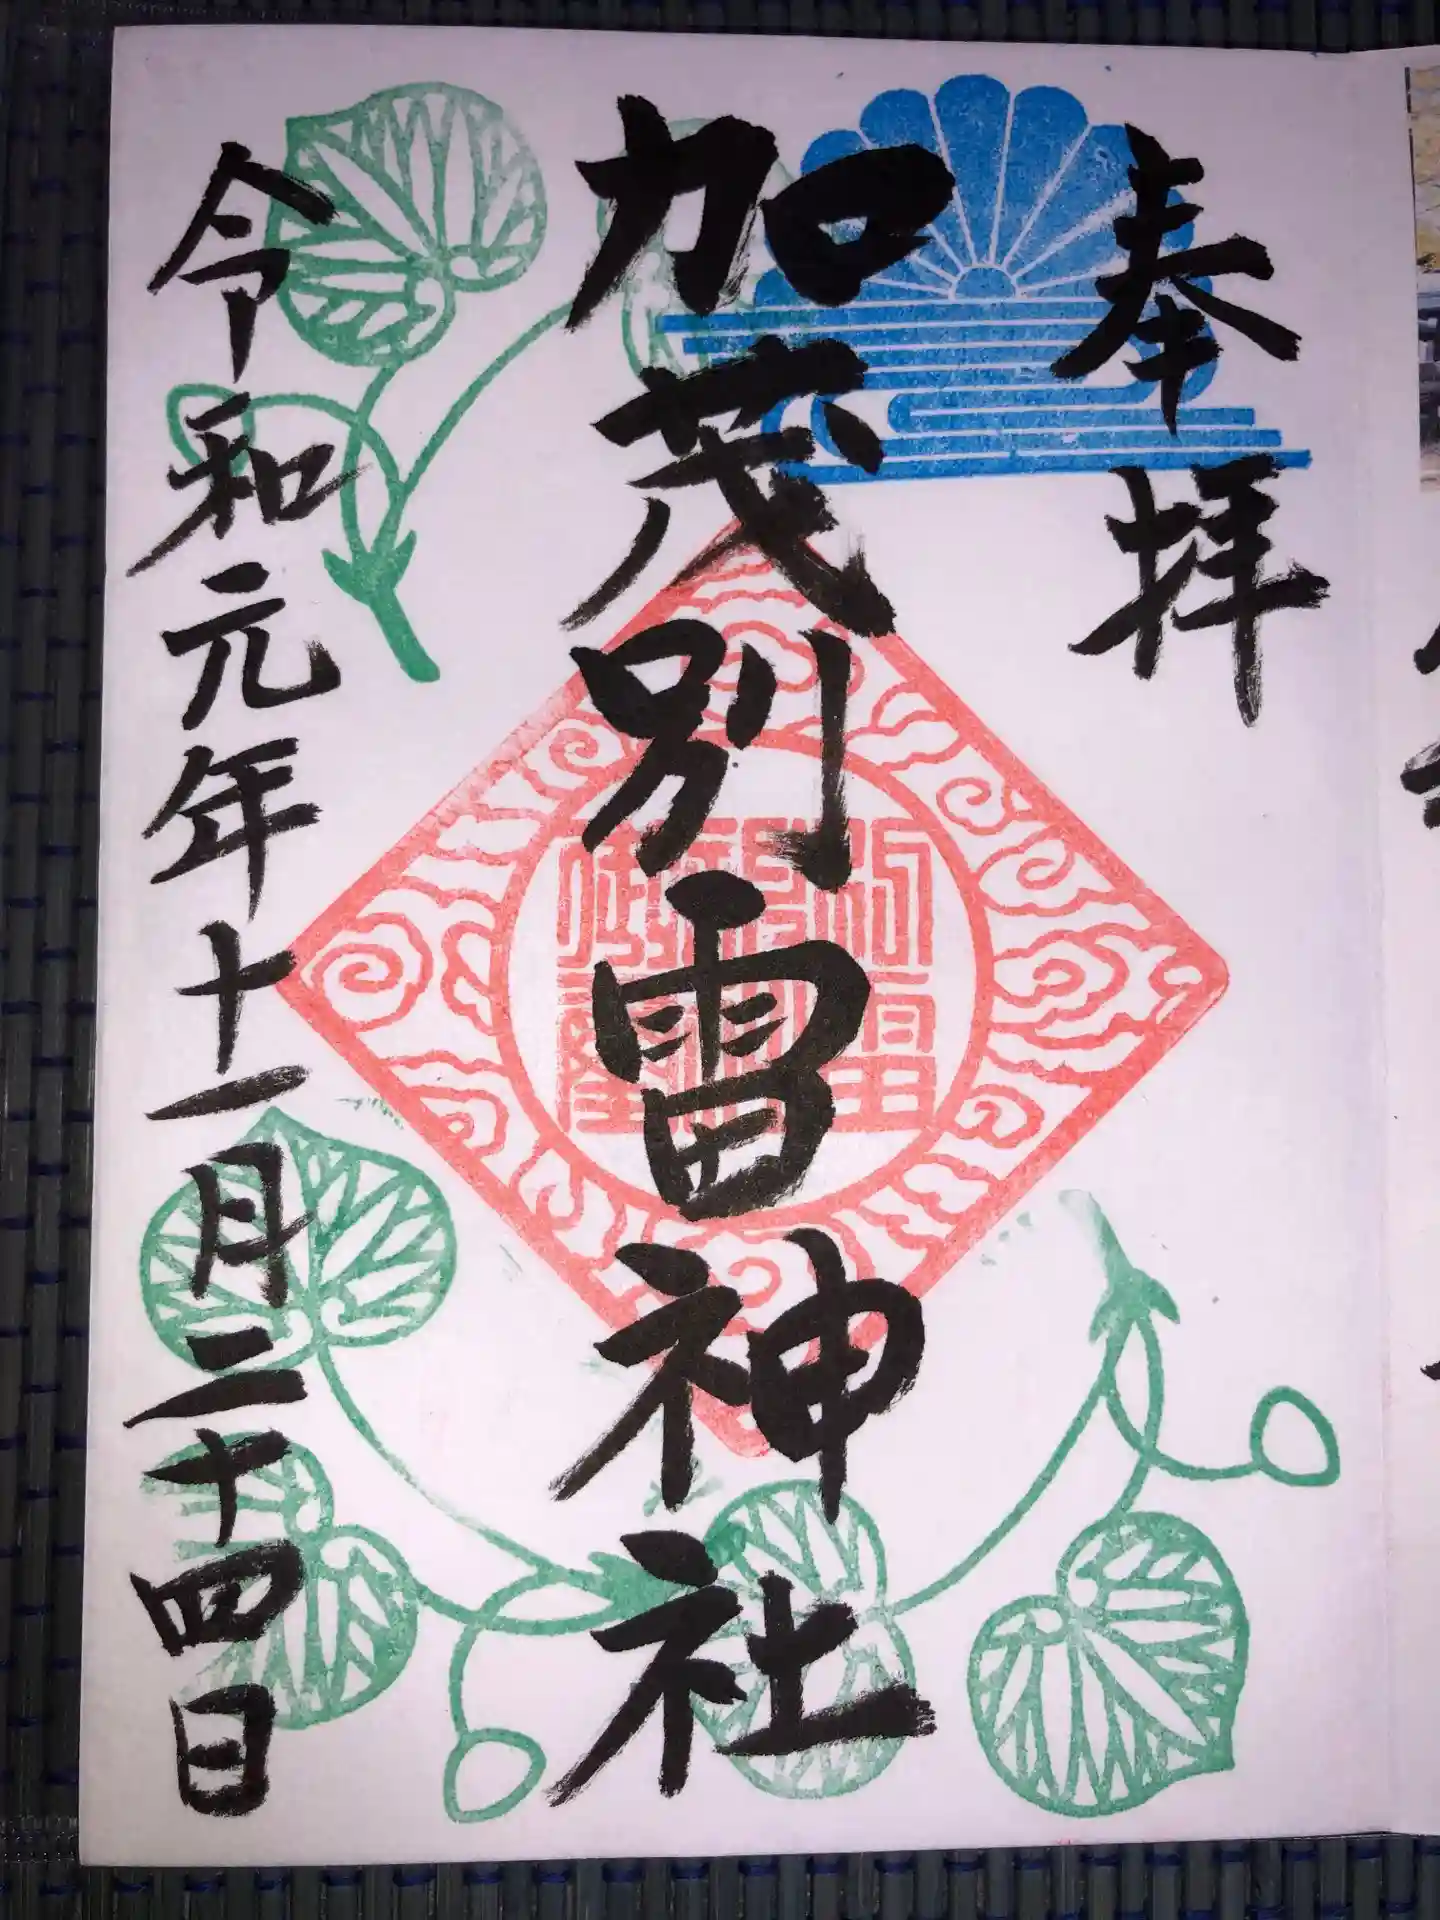 奉拝
加茂別雷神社
令和元年十一月二十四日